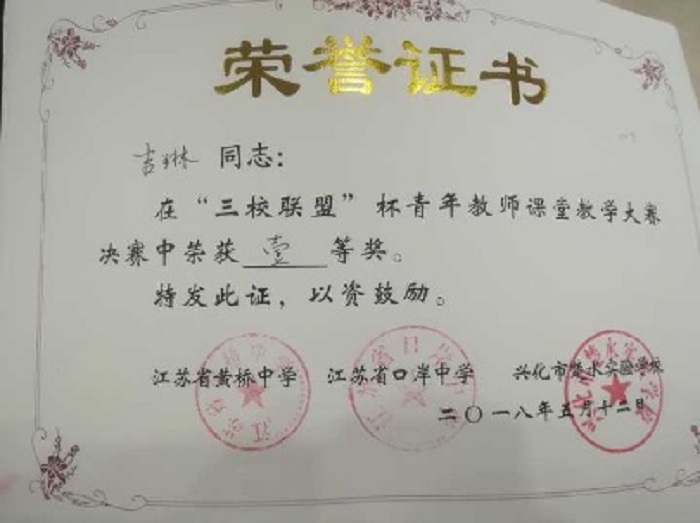 荣誉证书
吉琳 同志：
在“三校联盟”杯青年教师课堂教学大赛
决赛中荣获 壹 等奖。
特发此证，以资鼓励。
江苏省黄桥中学 江苏省口岸中学 兴化市楚水实验学校
二〇一八年五月十二日